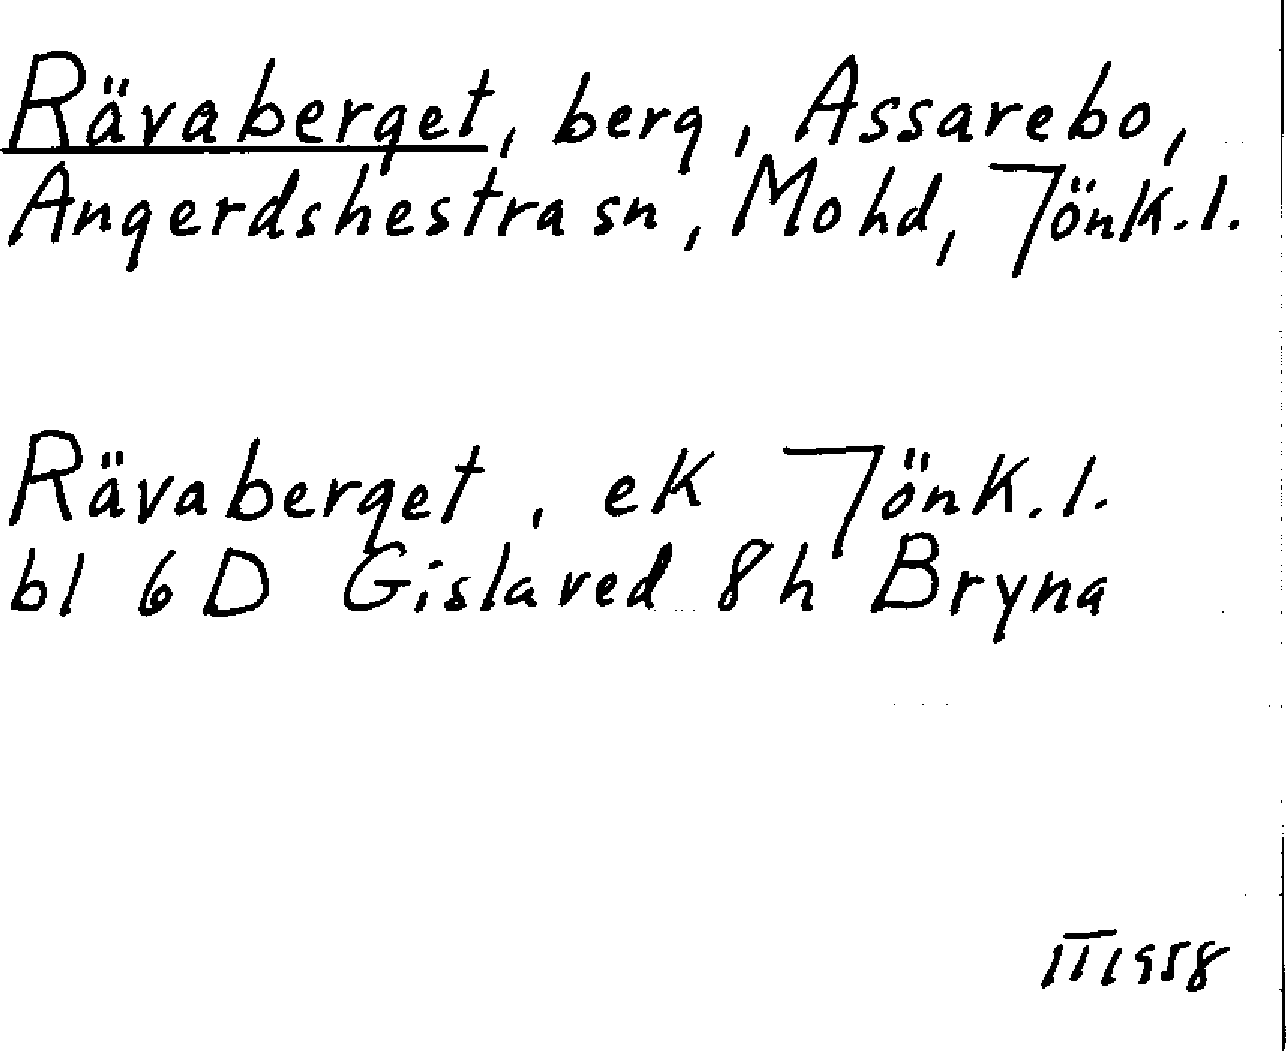 Rävaberget, berg, Assarebo,
Angerdshestra sn, Mo hd, Jönk.l.
Rävaberget, ek Jönk.l.
bl 6D Gislaved 8h Bryna
II 1958